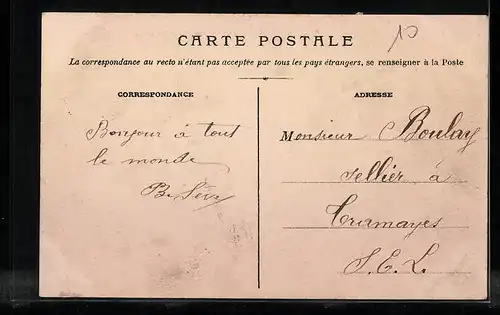 CARTE POSTALE
La correspondance au recto n'étant pas acceptée par tous les pays étrangers, se renseigner à la Poste
CORRESPONDANCE
Bonjour à tout
le monde
ADRESSE
Monsieur Boulay
sellier à
Tramayes
S. E. L.